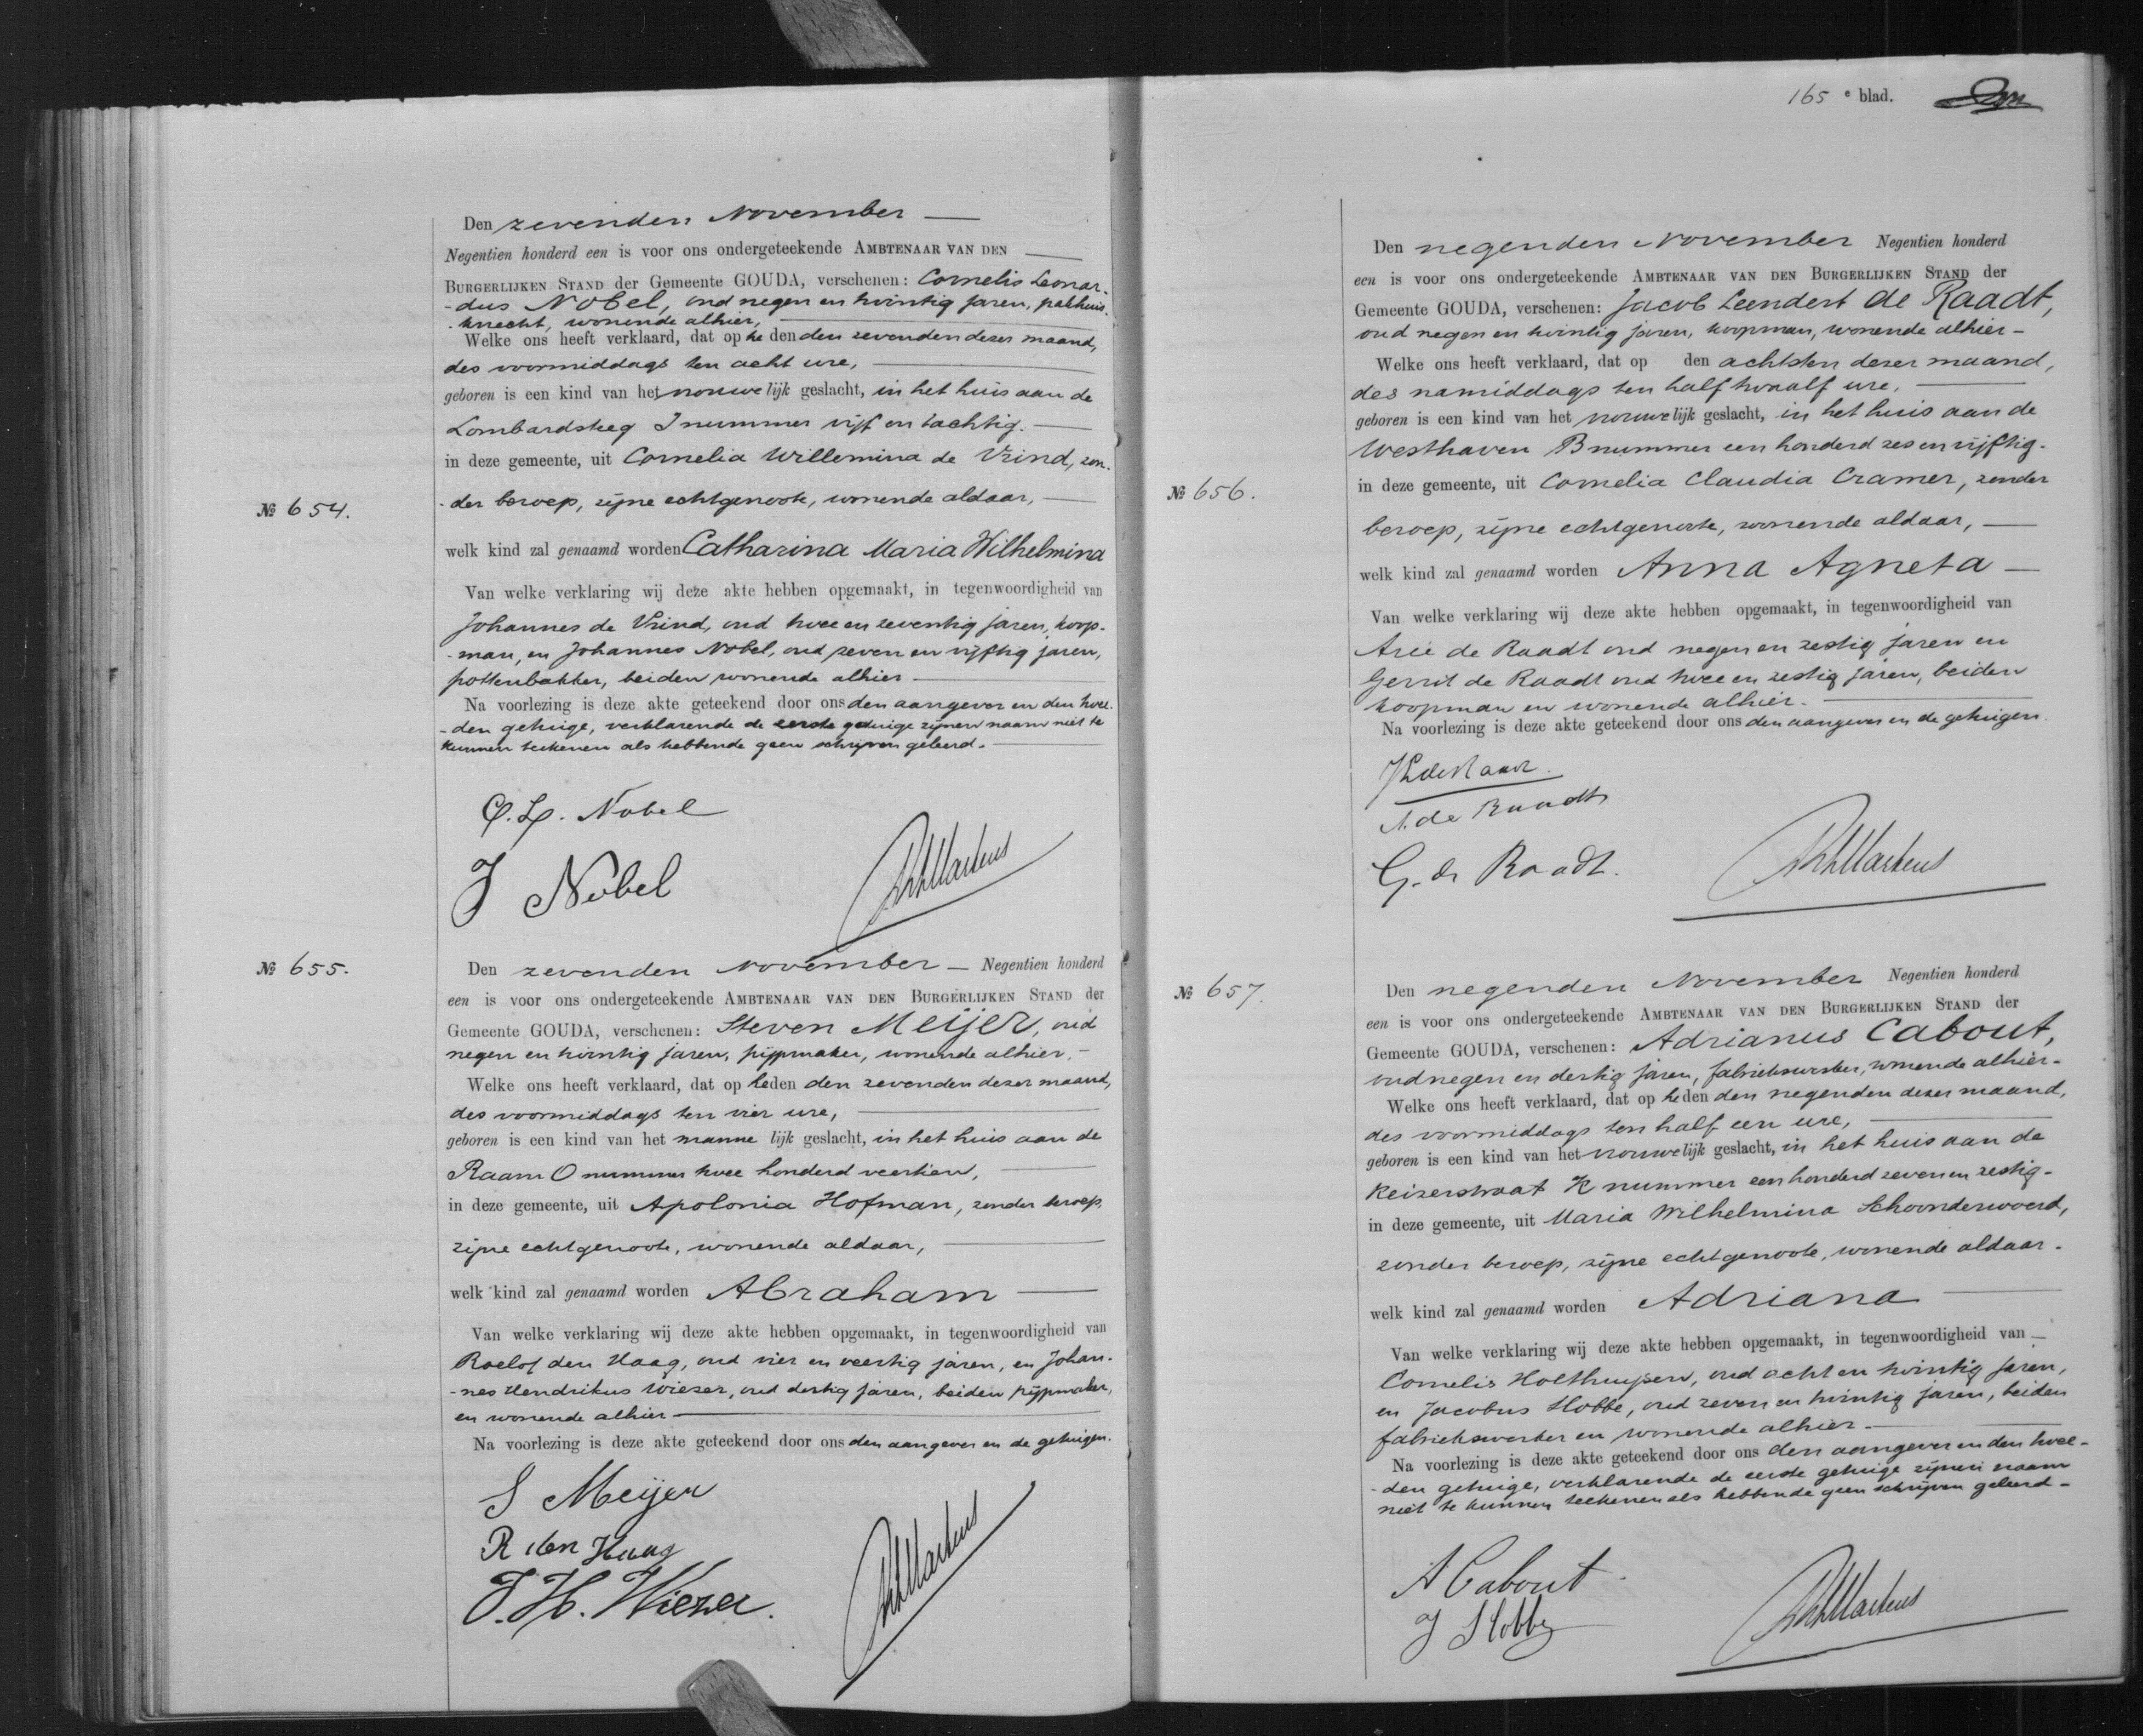 Den zevenden November —
Negentien honderd een is voor ons ondergeteekende AMBTENAAR VAN DEN
BURGERLIJKEN STAND der Gemeente GOUDA, verschenen: Cornelis Leonar-
-dus Nobel, oud negen en twintig jaren, pakhuis-
-knecht, wonende alhier,
Welke ons heeft verklaard, dat op heden den zevenden dezer maand,
des voormiddags ten acht ure,
geboren is een kind van het vrouwelijk geslacht, in het huis aan de
Lombardsteeg I nummer vijf en tachtig.
in deze gemeente, uit Cornelia Willemina de Vrind, zon-
№ 654.
-der beroep, zijne echtgenoote, wonende aldaar,
welk kind zal genaamd worden Catharina Maria Wilhelmina
Van welke verklaring wij deze akte hebben opgemaakt, in tegenwoordigheid van
Johannes de Vrind, oud twee en zeventig jaren, koop-
-man, en Johannes Nobel, oud zeven en vijftig jaren,
pottenbakker, beiden wonende alhier
Na voorlezing is deze akte geteekend door ons den aangever en den twee-
-den getuige, verklarende de eerste getuige zijnen naam niet te
kunnen teekenen als hebbende geen schrijven geleerd.
C. L. Nobel
J Nobel
Martens
№ 655.
Den zevenden November — Negentien honderd
een is voor ons ondergeteekende AMBTENAAR VAN DEN BURGERLIJKEN STAND der
Gemeente GOUDA, verschenen: Steven Meijer, oud
negen en twintig jaren, pijpmaker, wonende alhier,
Welke ons heeft verklaard, dat op heden den zevenden dezer maand,
des voormiddags ten vier ure,
geboren is een kind van het mannelijk geslacht, in het huis aan de
Raam O nummer twee honderd veertien,
in deze gemeente, uit Apolonia Hofman, zonder beroep,
zijne echtgenoote, wonende aldaar,
welk kind zal genaamd worden Abraham
Van welke verklaring wij deze akte hebben opgemaakt, in tegenwoordigheid van
Roelof den Haag, oud vier en veertig jaren, en Johan-
-nes Hendrikus Wiezer, oud dertig jaren, beiden pijpmaker,
en wonende alhier
Na voorlezing is deze akte geteekend door ons den aangever en de getuigen.
S Meijer
R den Haag
J. H. Wiezer.
Martens
165 e blad.
Den negenden November Negentien honderd
een is voor ons ondergeteekende AMBTENAAR VAN DEN BURGERLIJKEN STAND der
Gemeente GOUDA, verschenen: Jacob Leendert de Raadt,
oud negen en twintig jaren, koopman, wonende alhier
Welke ons heeft verklaard, dat op den achtsten dezer maand,
des namiddags ten half twaalf ure,
geboren is een kind van het vrouwelijk geslacht, in het huis aan de
Westhaven B nummer een honderd zes en vijftig.
№ 656.
in deze gemeente, uit Cornelia Claudia Cramer, zonder
beroep, zijne echtgenoote, wonende aldaar,
welk kind zal genaamd worden Anna Agneta
Van welke verklaring wij deze akte hebben opgemaakt, in tegenwoordigheid van
Arie de Raadt oud negen en zestig jaren en
Gerrit de Raadt oud twee en zestig jaren, beiden
koopman en wonende alhier.
Na voorlezing is deze akte geteekend door ons den aangever en de getuigen.
JLdeRaadt.
A. de Raadt
G. de Raadt.
Martens
№ 657.
Den negenden November Negentien honderd
een is voor ons ondergeteekende AMBTENAAR VAN DEN BURGERLIJKEN STAND der
Gemeente GOUDA, verschenen: Adrianus Cabout,
oud negen en dertig jaren, fabriekswerker, wonende alhier
Welke ons heeft verklaard, dat op heden den negenden dezer maand,
des voormiddags ten half een ure,
geboren is een kind van het vrouwelijk geslacht, in het huis aan de
Keizerstraat K nummer een honderd zeven en zestig
in deze gemeente, uit Maria Wilhelmina Schoonderwoerd,
zonder beroep, zijne echtgenoote, wonende aldaar.
welk kind zal genaamd worden Adriana
Van welke verklaring wij deze akte hebben opgemaakt, in tegenwoordigheid van
Cornelis Holthuijsen, oud acht en twintig jaren,
en Jacobus Slobbe, oud zeven en twintig jaren, beiden
fabriekswerker en wonende alhier
Na voorlezing is deze akte geteekend door ons den aangever en den twee-
-den getuige, verklarende de eerste getuige zijnen naam
niet te kunnen teekenen als hebbende geen schrijven geleerd
A Cabout
J Slobbe
Martens